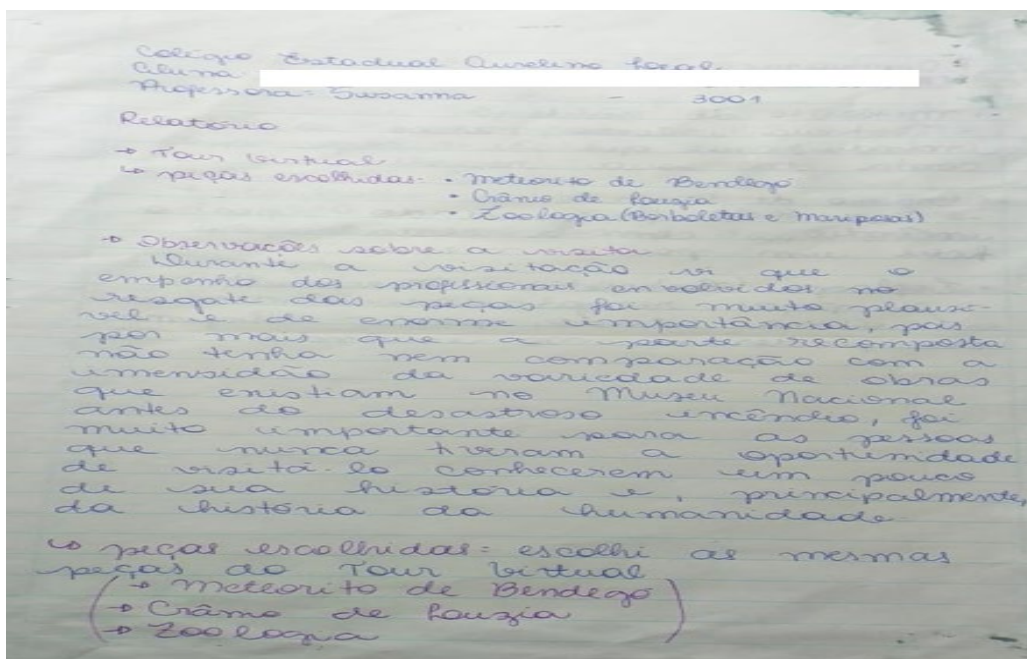 Colégio Estadual Aurelino Leal
Aluna:
Professora: Susanna - 3001
Relatório
→ Tour virtual
↳ peças escolhidas: • Meteorito de Bendegó
• Crânio de Louzia
• Zoologia (Borboletas e mariposas)
→ Observações sobre a visita
Durante a visitação vi que o
empenho dos profissionais envolvidos no
resgate das peças foi muito plausí-
vel e de enorme importância, pois
por mais que a parte recomposta
não tenha nem comparação com a
imensidão da variedade de obras
que existiam no Museu Nacional
antes do desastroso incêndio, foi
muito importante para as pessoas
que nunca tiveram a oportunidade
de visitá-lo conhecerem um pouco
de sua história e, principalmente,
da história da humanidade.
↳ peças escolhidas: escolhi as mesmas
peças do Tour Virtual
(→ Meteorito de Bendegó)
→ Crânio de Louzia
→ Zoologia